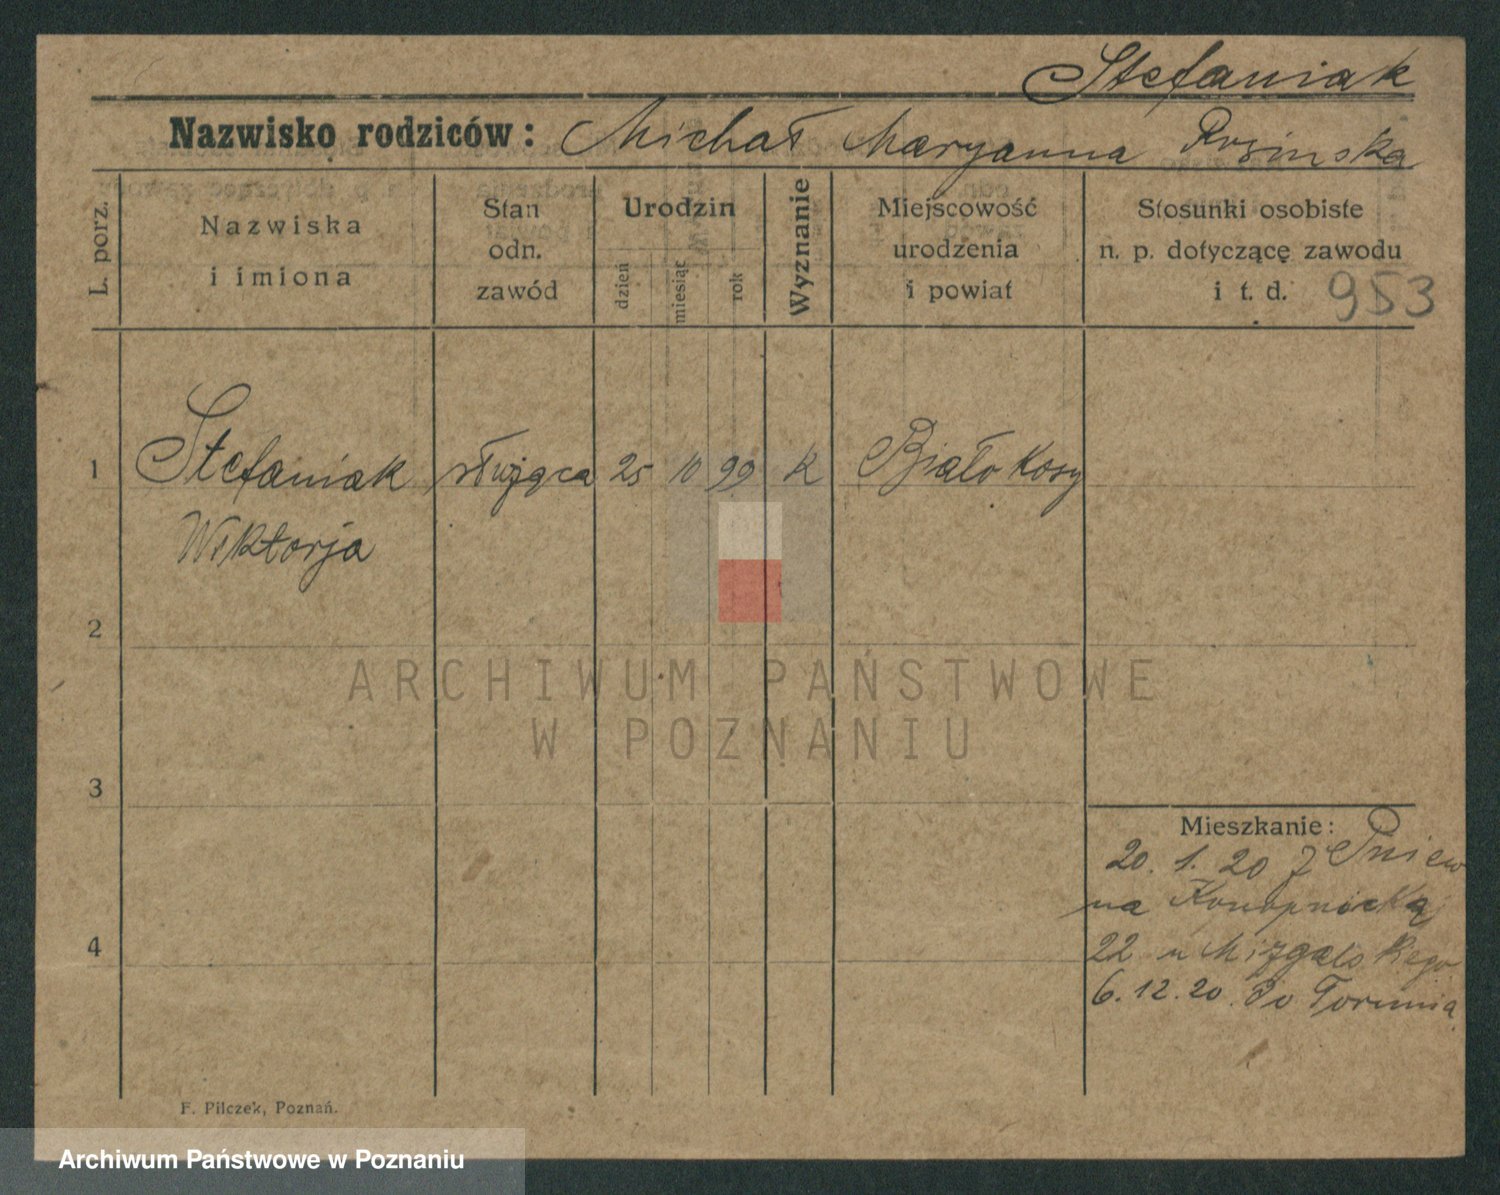 Stefaniak
Nazwisko rodziców: Michał Maryanna
L. porz.
Nazwiska
i imiona
Stan
odn.
zawód
Urodzin
dzień
miesiąc
rok
Wyznanie
Miejscowość
urodzenia
i powiat
Stosunki osobiste
n. p. dotyczącę zawodu
i t. d. 953
1 Stefaniak służąca 25 10 99 k Białokosy
Wiktorja
2
ARCHIWUM PAŃSTWOWE
W POZNANIU
3
Mieszkanie:
20. 1. 20 z Pniew
na Konopnicką
4
22 u Mizgalskiego
6. 12. 20. Do Torunia
F. Pilczek, Poznań.
Archiwum Państwowe w Poznaniu